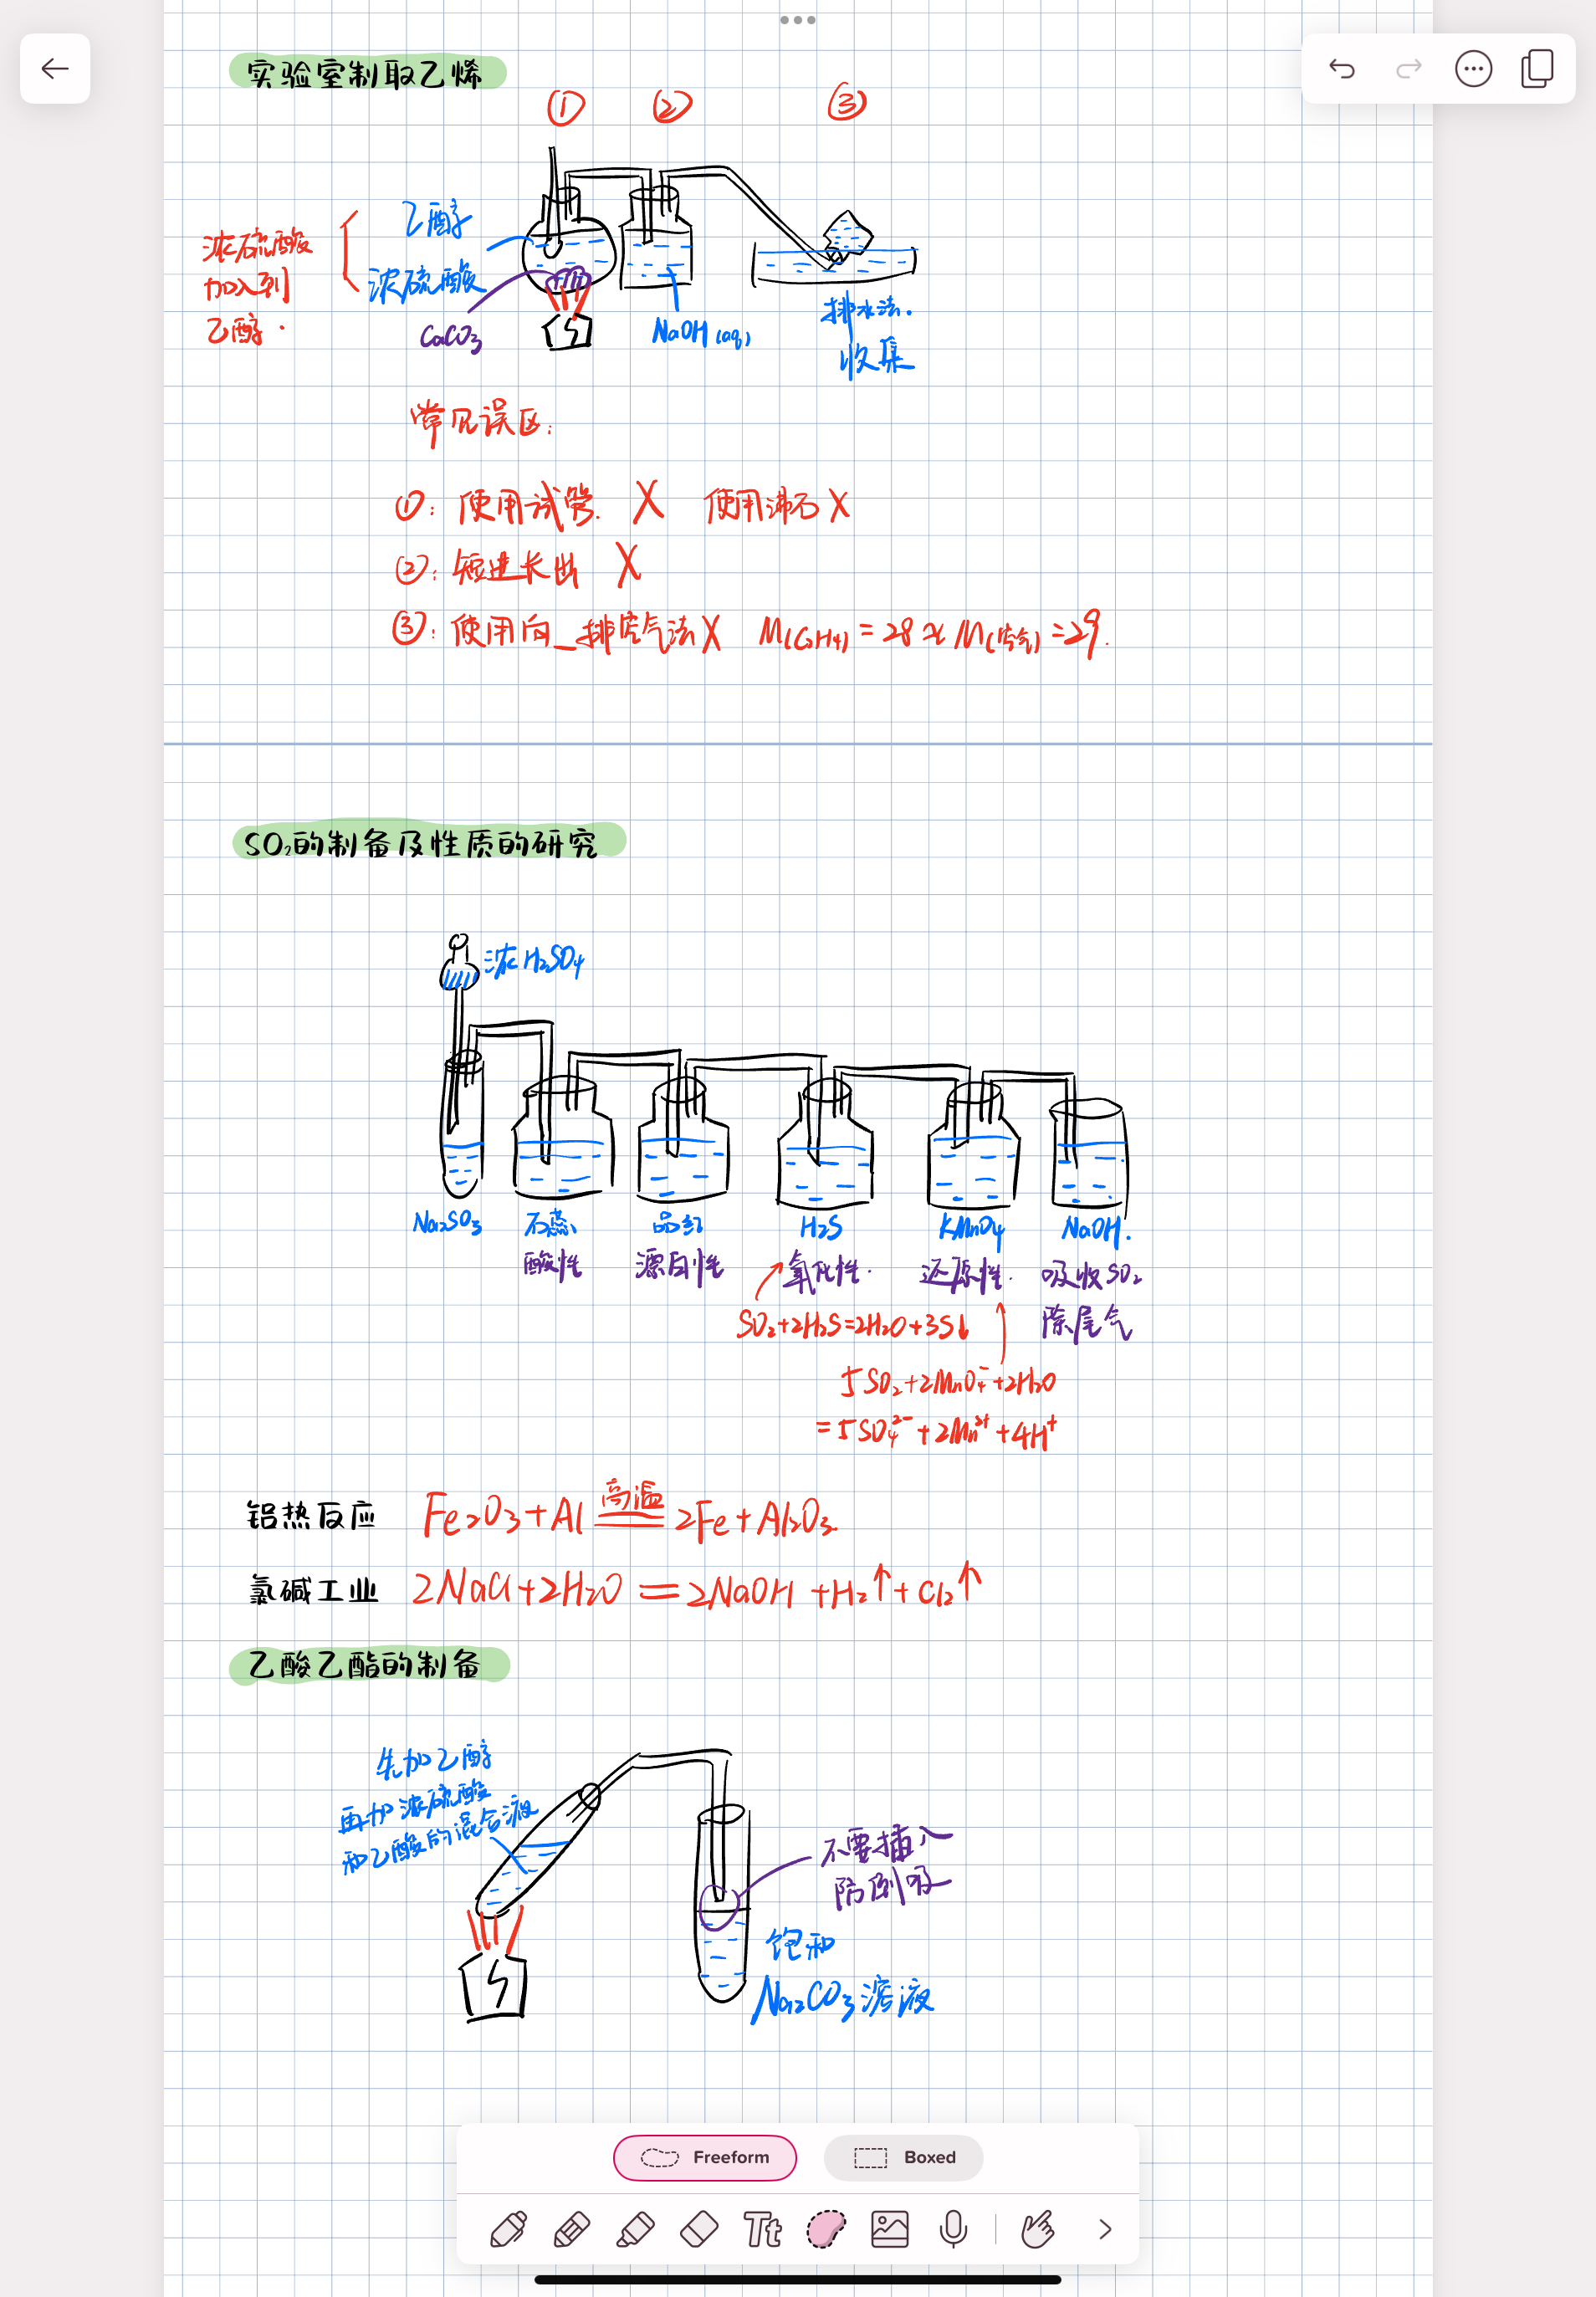 实验室制取乙烯
① ② ③
浓硫酸
加入到
乙醇.
乙醇
浓硫酸
CaCO₃
NaOH (aq)
排水法.
收集
常见误区:
①: 使用试管. X 使用沸石 X
②: 短进长出 X
③: 使用向_排空气法 X M(C₂H₄) = 28 ≈ M(空气) = 29.
SO₂的制备及性质的研究
浓H₂SO₄
Na₂SO₃ 石蕊 品红 H₂S KMnO₄ NaOH.
酸性 漂白性 氧化性. 还原性. 吸收SO₂
除尾气
SO₂+2H₂S=2H₂O+3S↓
5SO₂+2MnO₄⁻+2H₂O
=5SO₄²⁻+2Mn²⁺+4H⁺
铝热反应 Fe₂O₃+Al 高温 2Fe+Al₂O₃.
氯碱工业 2NaCl+2H₂O=2NaOH+H₂↑+Cl₂↑
乙酸乙酯的制备
先加乙醇
再加浓硫酸
和乙酸的混合液
不要插入
防倒吸
饱和
Na₂CO₃溶液
Freeform Boxed
Tt